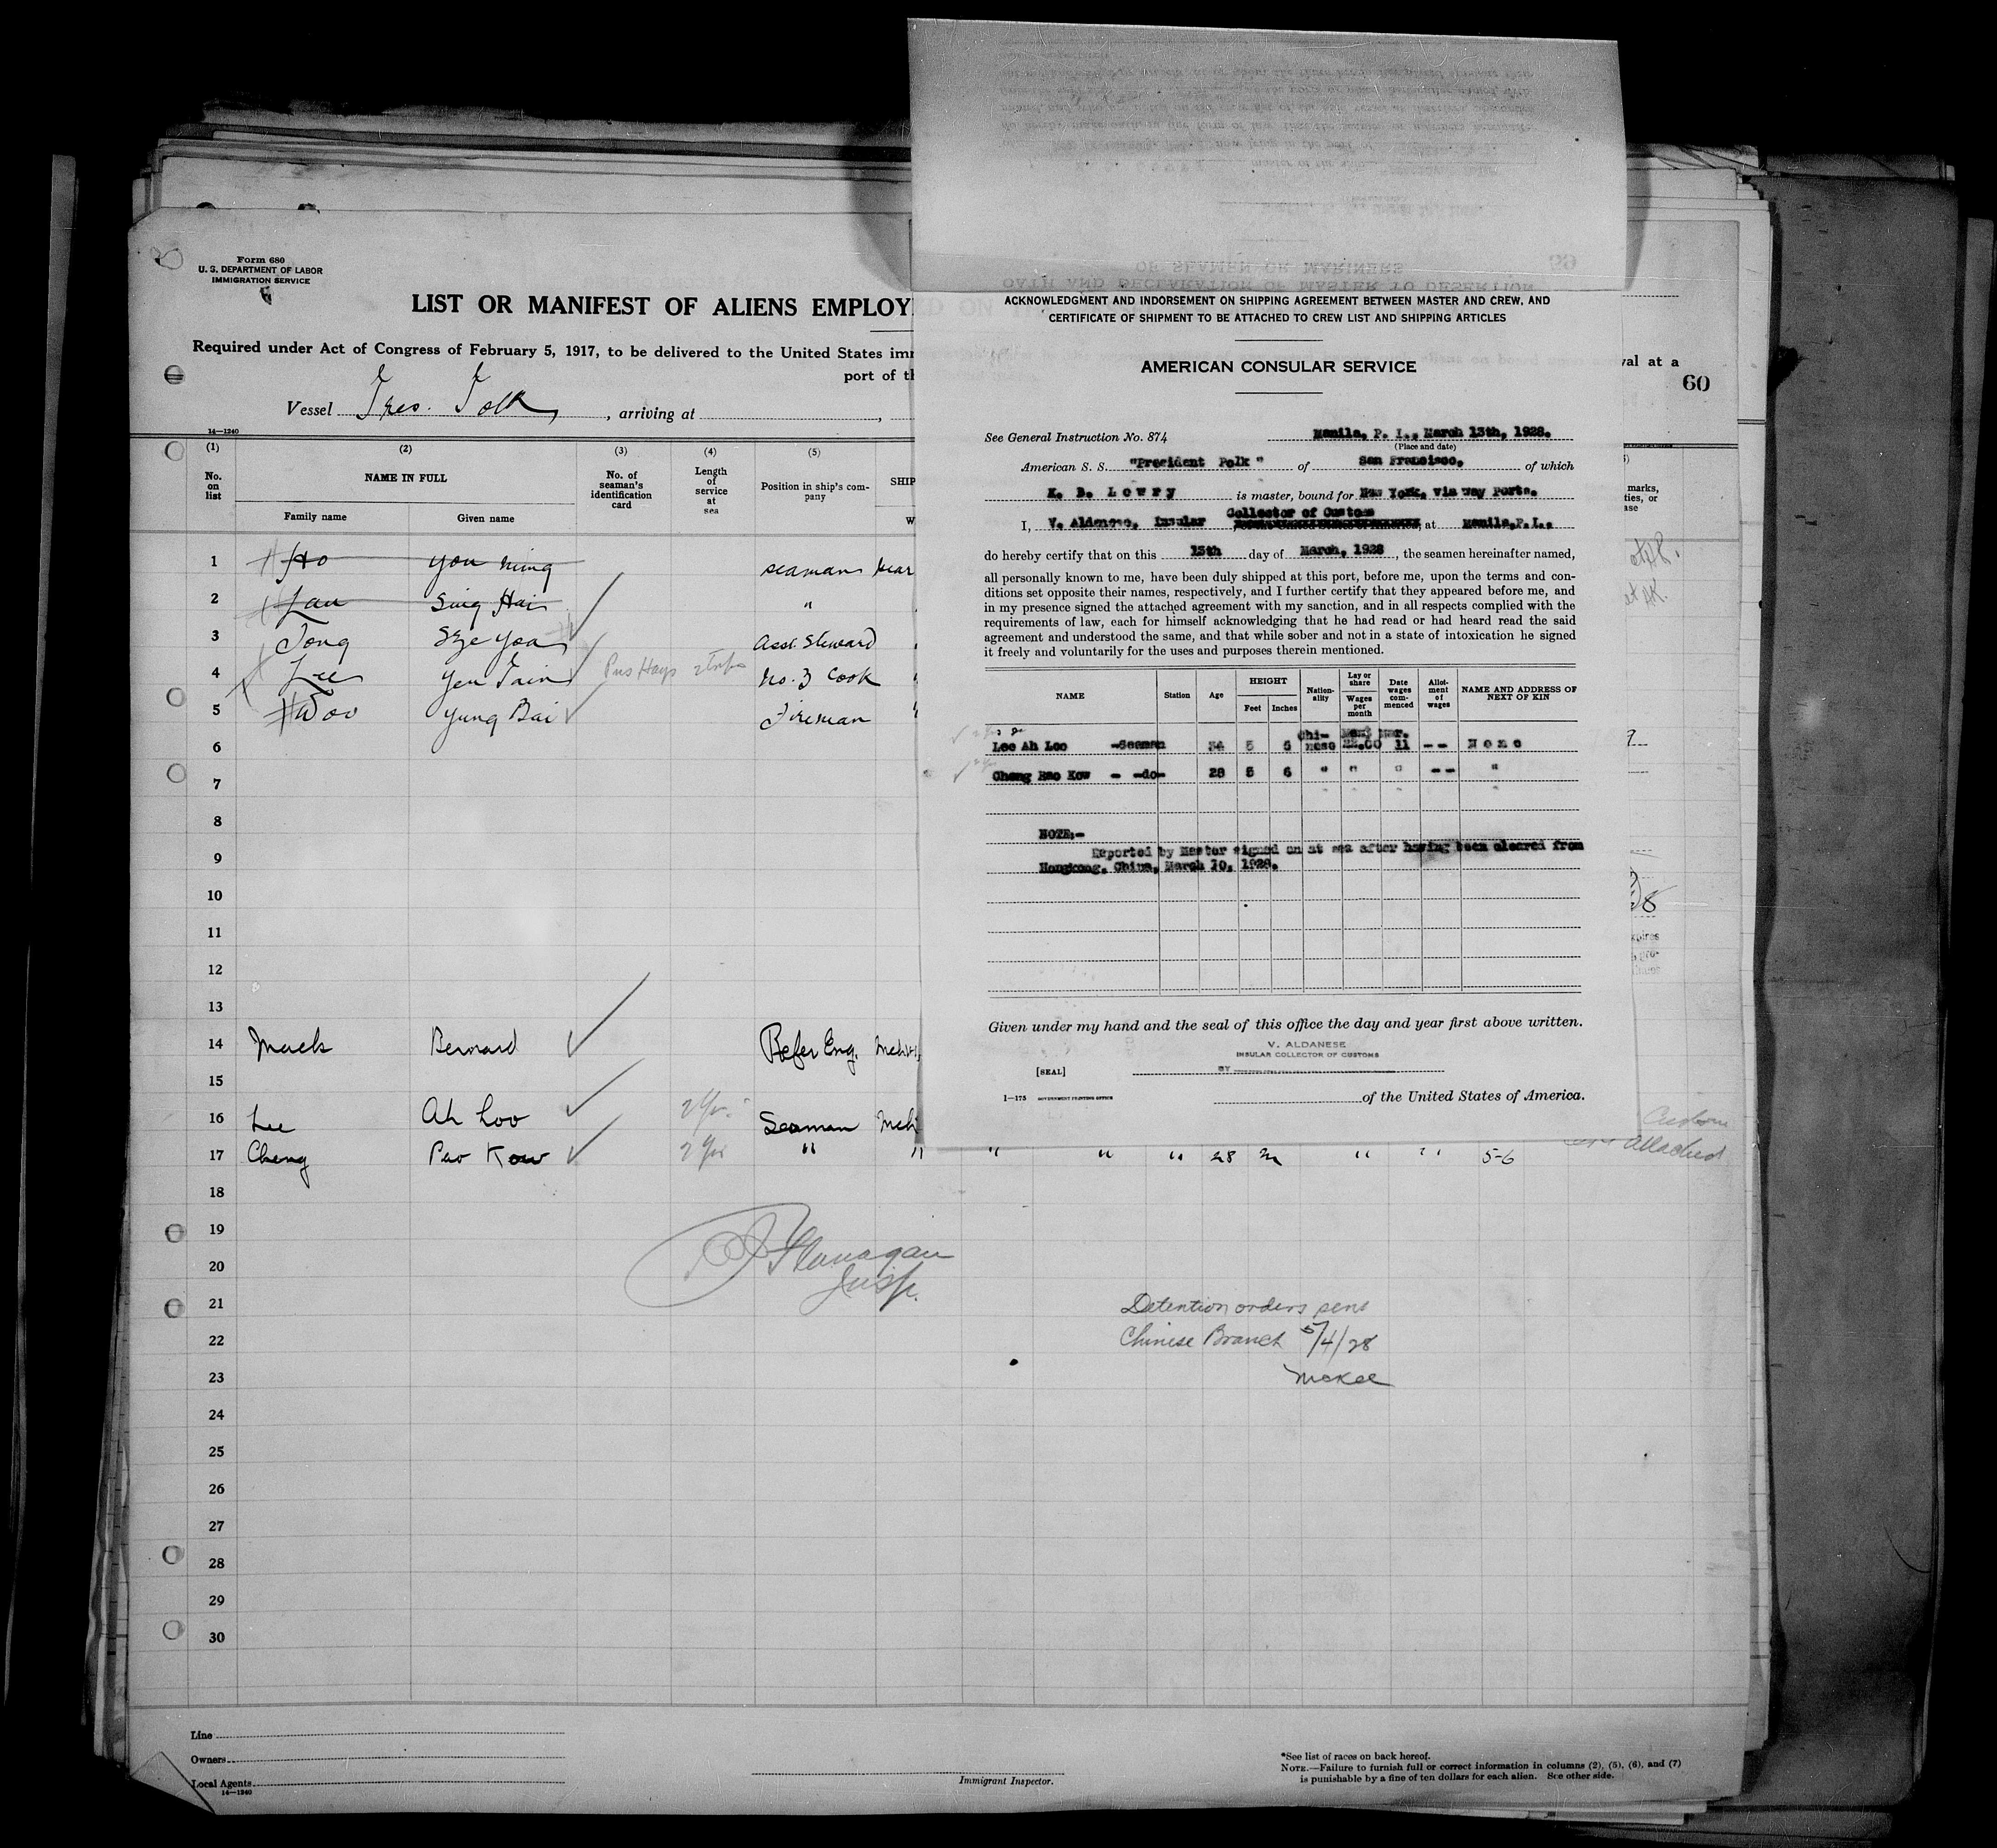 Form 680
U. S. DEPARTMENT OF LABOR
IMMIGRATION SERVICE
LIST OR MANIFEST OF ALIENS EMPLOY
Required under Act of Congress of February 5, 1917, to be delivered to the United States im
port of th
Vessel Pres. Polk, arriving at
14—1240
(1) (2) (3) (4) (5)
No. on list
NAME IN FULL
Family name Given name
No. of seaman's identification card
Length of service at sea
Position in ship's company
SHIP
W
1 Ho You Ming seaman
2 Lau Sing Hai "
3 Tong Sze Yoa Asst. Steward
4 Lee Yeu Tain Pres Hays 2 trips No. 3 Cook
5 Woo Yung Bai Fireman
6
7
8
9
10
11
12
13
14 Mack Bernard Refer Eng.
15
16 Lee Ah Loo 2 yrs. Seaman
17 Cheng Pao Kow 2 yrs " " " " " 28 m " " 5-6
18
19
20
21
22
23
24
25
26
27
28
29
30
Flanagan
Insp.
Detention orders sent
Chinese Branch 5/4/28
McKee
Line
Owners
Local Agents
14—1240
Immigrant Inspector.
*See list of races on back hereof.
NOTE.—Failure to furnish full or correct information in columns (2), (5), (6), and (7)
is punishable by a fine of ten dollars for each alien. See other side.
val at a
60
marks,
ties, or
ase
attached
OATH AND DECLARATION OF MASTER TO DESERTION
OF SEAMEN OR MARINERS
69
ACKNOWLEDGMENT AND INDORSEMENT ON SHIPPING AGREEMENT BETWEEN MASTER AND CREW, AND
CERTIFICATE OF SHIPMENT TO BE ATTACHED TO CREW LIST AND SHIPPING ARTICLES
AMERICAN CONSULAR SERVICE
See General Instruction No. 874 Manila, P. I., March 13th, 1928.
(Place and date)
American S. S. "President Polk" of San Francisco, of which
K. D. Lowry is master, bound for New York, via way Ports.
Collector of Customs
I, V. Aldanese, Insular at Manila, P.I.,
do hereby certify that on this 13th day of March, 1928, the seamen hereinafter named,
all personally known to me, have been duly shipped at this port, before me, upon the terms and con-
ditions set opposite their names, respectively, and I further certify that they appeared before me, and
in my presence signed the attached agreement with my sanction, and in all respects complied with the
requirements of law, each for himself acknowledging that he had read or had heard read the said
agreement and understood the same, and that while sober and not in a state of intoxication he signed
it freely and voluntarily for the uses and purposes therein mentioned.
NAME Station Age HEIGHT Feet Inches Nationality Lay or share Wages per month Date wages commenced Allotment of wages NAME AND ADDRESS OF NEXT OF KIN
Lee Ah Loo -Seaman 34 5 5 Chinese 22.00 Mar. 11 -- None
Cheng Bao Kow - -do- 28 5 6 " " " -- "
NOTE:-
Reported by Master signed on at sea after having been cleared from
Hongkong, China, March 10, 1928.
Given under my hand and the seal of this office the day and year first above written.
V. ALDANESE
INSULAR COLLECTOR OF CUSTOMS
[SEAL] BY
1—175 GOVERNMENT PRINTING OFFICE of the United States of America.